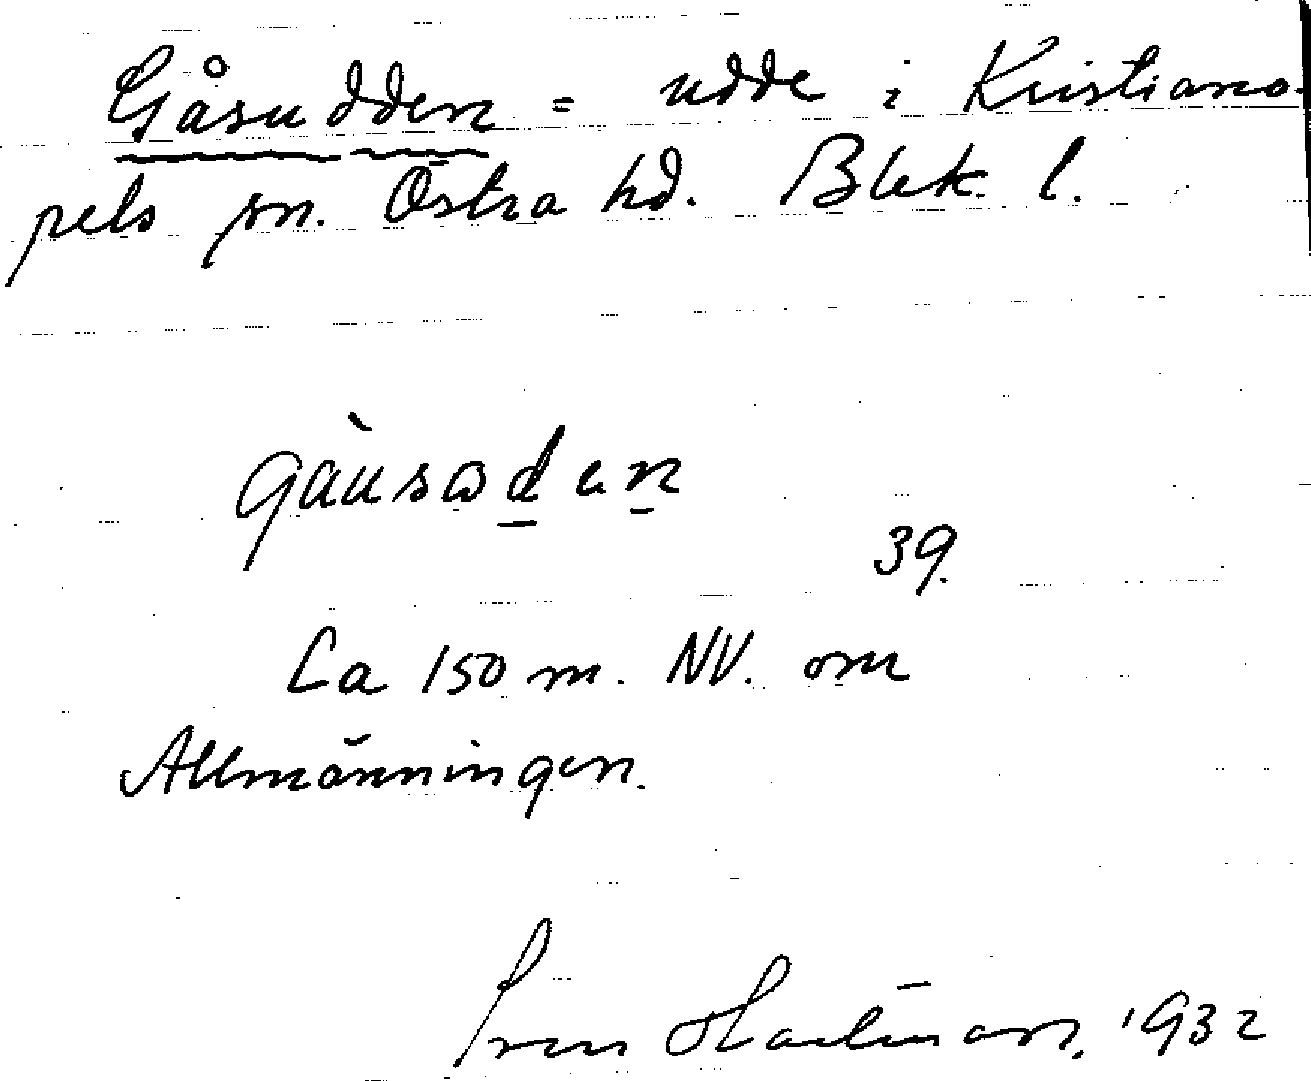 Gåsudden = udde i Kristiano-
pels sn. Östra hd. Blek. l.
gàusɷden
39.
Ca 150 m. NV. om
Allmänningen.
Sven Hartman, 1932